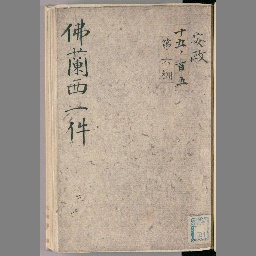 安政
十五ノ百五
第六捌
佛蘭西一件